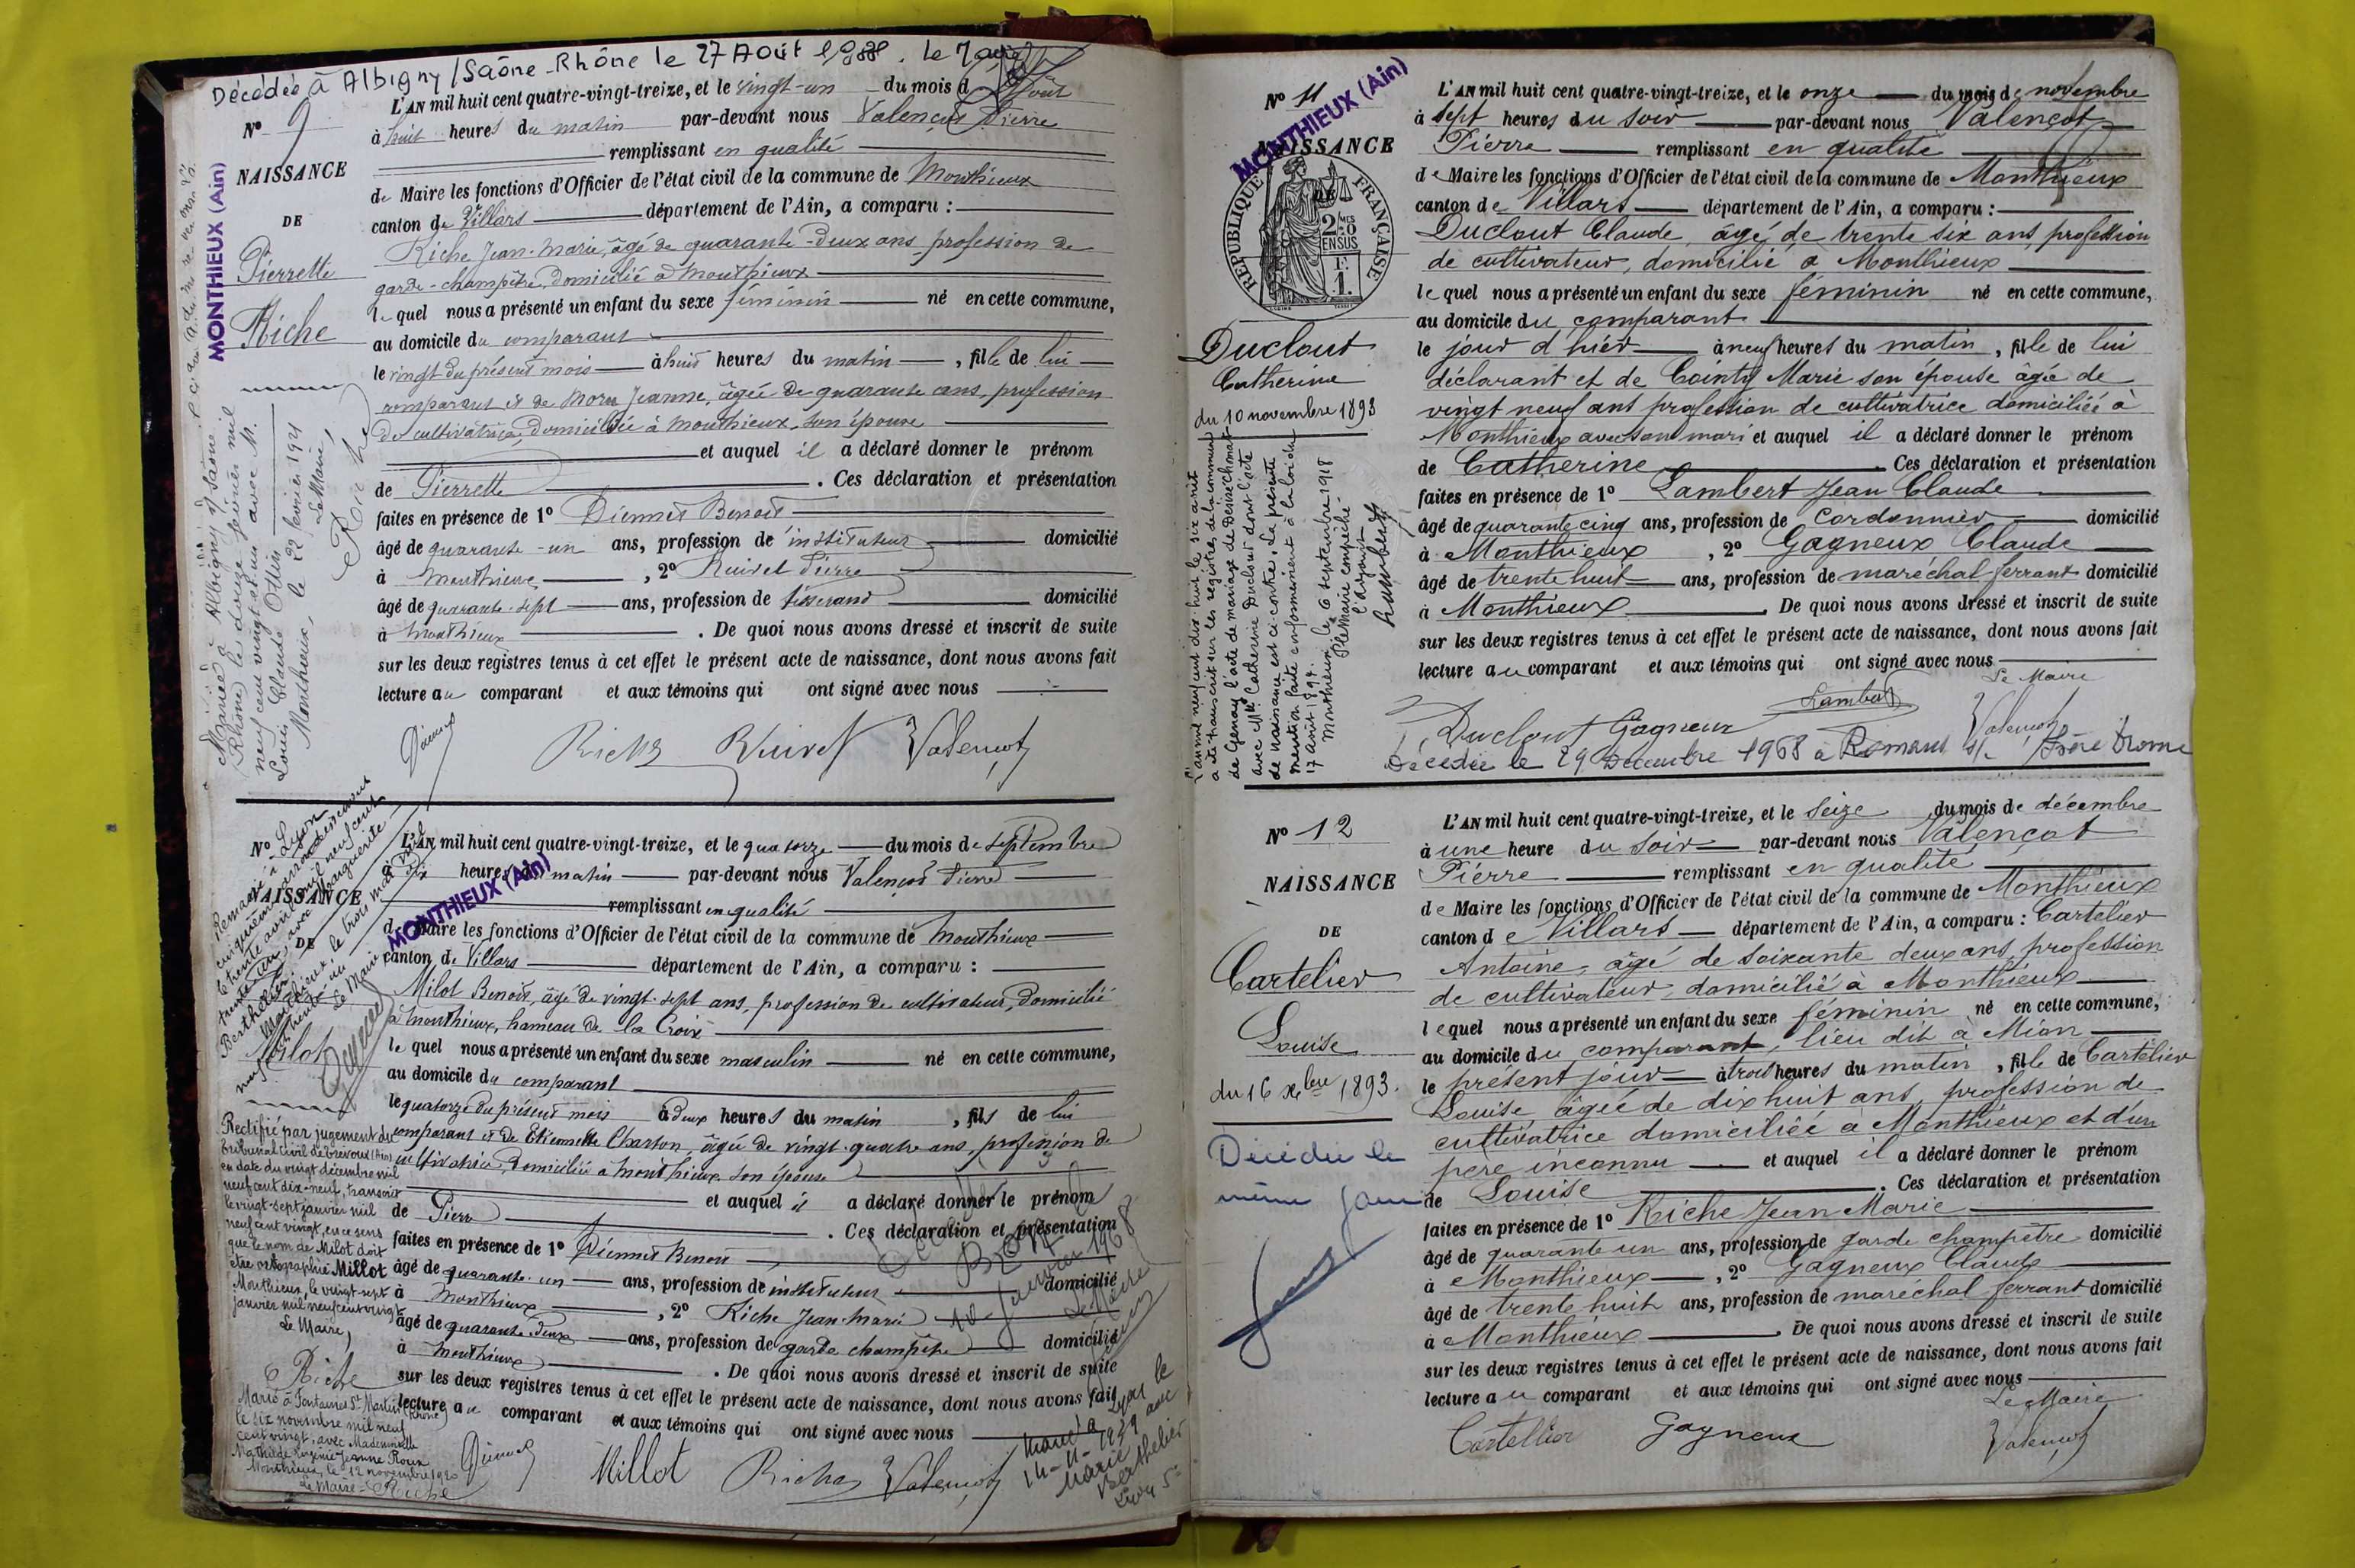 Décédée à Albigny / Saône - Rhône le 27 Août 1988. Le
N° 9
NAISSANCE
DE
Pierrette
Riche
MONTHIEUX (Ain)
L'AN mil huit cent quatre-vingt-treize, et le vingt-un du mois d'Aout
à huit heures du matin par-devant nous Valençot Pierre
remplissant en qualité
de Maire les fonctions d'Officier de l'état civil de la commune de Monthieux
canton de Villars département de l'Ain, a comparu :
Riche Jean-Marie, âgé de quarante-deux ans, profession de
garde-champêtre, domicilié à Monthieux
lequel nous a présenté un enfant du sexe féminin né en cette commune,
au domicile du comparant
le vingt du présent mois à huit heures du matin, fille de lui
comparant et de Jeanne, âgée de quarante ans, profession
de cultivatrice, domiciliée à Monthieux, son épouse
et auquel il a déclaré donner le prénom
de Pierrette. Ces déclaration et présentation
faites en présence de 1° Benoit
âgé de quarante-un ans, profession de instituteur domicilié
à Monthieux, 2° Ruivet Pierre
âgé de quarante-sept ans, profession de tisserand domicilié
à Monthieux. De quoi nous avons dressé et inscrit de suite
sur les deux registres tenus à cet effet le présent acte de naissance, dont nous avons fait
lecture au comparant et aux témoins qui ont signé avec nous
Riche Ruivet Valençot
Mariée à Albigny s/ Saône
(Rhône) le douze février mil
neuf cent vingt et un avec M.
Louis Claude Ottin
Monthieux, le 22 février 1921
Le Maire,
Riche
N°
NAISSANCE
DE
Milot
MONTHIEUX (Ain)
L'AN mil huit cent quatre-vingt-treize, et le quatorze du mois de septembre
à dix heures du matin par-devant nous Valençot Pierre
remplissant en qualité
de Maire les fonctions d'Officier de l'état civil de la commune de Monthieux
canton de Villars département de l'Ain, a comparu :
Milot Benoît, âgé de vingt-sept ans, profession de cultivateur, domicilié
à Monthieux, hameau de la Croix
lequel nous a présenté un enfant du sexe masculin né en cette commune,
au domicile du comparant
le quatorze du présent mois à deux heures du matin, fils de lui
comparant et de Etiennette Charton, âgée de vingt-quatre ans, profession de
cultivatrice, domiciliée à Monthieux son épouse
et auquel il a déclaré donner le prénom
de Pierre. Ces déclaration et présentation
faites en présence de 1° Benoit
âgé de quarante-un ans, profession de instituteur domicilié
à Monthieux, 2° Riche Jean-Marie
âgé de quarante-deux ans, profession de garde champêtre domicilié
à Monthieux. De quoi nous avons dressé et inscrit de suite
sur les deux registres tenus à cet effet le présent acte de naissance, dont nous avons fait
lecture au comparant et aux témoins qui ont signé avec nous
Millot Riche Valençot
Rectifié par jugement du
tribunal civil de Trévoux (Ain)
en date du vingt décembre mil
neuf cent dix-neuf, transcrit
le vingt-sept janvier mil
neuf cent vingt, en ce sens
que le nom de Milot doit
être orthographié Millot
Monthieux, le vingt-sept
janvier mil neuf cent vingt
Le Maire,
Riche
Marié à Fontaines St Martin (Rhône)
le six novembre mil neuf
cent vingt, avec Mademoiselle
Mathilde Eugénie Jeanne Roux
Monthieux, le 12 novembre 1920
Le Maire - Riche
N° 11
MONTHIEUX (Ain)
NAISSANCE
DE
RÉPUBLIQUE FRANÇAISE
Duclout
Catherine
du 10 novembre 1893
L'AN mil huit cent quatre-vingt-treize, et le onze du mois de novembre
à sept heures du soir par-devant nous Valençot
Pierre remplissant en qualité
de Maire les fonctions d'Officier de l'état civil de la commune de Monthieux
canton de Villars département de l'Ain, a comparu :
Duclout Claude, âgé de trente six ans, profession
de cultivateur, domicilié à Monthieux
lequel nous a présenté un enfant du sexe féminin né en cette commune,
au domicile du comparant
le jour d'hier à neuf heures du matin, fille de lui
déclarant et de Marie son épouse âgée de
vingt neuf ans profession de cultivatrice domiciliée à
Monthieux avec son mari et auquel il a déclaré donner le prénom
de Catherine. Ces déclaration et présentation
faites en présence de 1° Lambert Jean Claude
âgé de quarante cinq ans, profession de cordonnier domicilié
à Monthieux, 2° Gagneux Claude
âgé de trente huit ans, profession de maréchal ferrant domicilié
à Monthieux. De quoi nous avons dressé et inscrit de suite
sur les deux registres tenus à cet effet le présent acte de naissance, dont nous avons fait
lecture au comparant et aux témoins qui ont signé avec nous
Le Maire
Lambert
Duclout Gagneux Valençot
Décédée le 29 Décembre 1968 à Romans s/ Isère Drome
L'an mil neuf cent dix huit le six avril
a été transcrit sur les registres de la commune
de Genay l'acte de mariage de
avec Mlle Catherine Duclout dont l'acte
de naissance est ci-contre. La présente
mention faite conformément à la loi du
17 août 1897.
Monthieux le 6 septembre 1918
P. le Maire empêché
l'adjoint
N° 12
NAISSANCE
DE
Cartelier
Louise
du 16 Xbre 1893.
Décédée le
même jour
L'AN mil huit cent quatre-vingt-treize, et le seize du mois de décembre
à une heure du soir par-devant nous Valençot
Pierre remplissant en qualité
de Maire les fonctions d'Officier de l'état civil de la commune de Monthieux
canton de Villars département de l'Ain, a comparu : Cartelier
Antoine, âgé de soixante deux ans, profession
de cultivateur, domicilié à Monthieux
lequel nous a présenté un enfant du sexe féminin né en cette commune,
au domicile du comparant, lieu dit à Mion
le présent jour à trois heures du matin, fille de Cartelier
Louise âgée de dix huit ans, profession de
cultivatrice domiciliée à Monthieux et d'un
père inconnu et auquel il a déclaré donner le prénom
de Louise. Ces déclaration et présentation
faites en présence de 1° Riche Jean Marie
âgé de quarante un ans, profession de garde champêtre domicilié
à Monthieux, 2° Gagneux Claude
âgé de trente huit ans, profession de maréchal ferrant domicilié
à Monthieux. De quoi nous avons dressé et inscrit de suite
sur les deux registres tenus à cet effet le présent acte de naissance, dont nous avons fait
lecture au comparant et aux témoins qui ont signé avec nous
Le Maire
Cartellier Gagneux Valençot